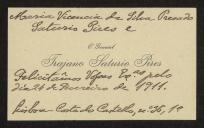 Maria Vicencia da Silva Pressado
Saturio Pires e
O General
Trajano Saturio Pires
Felicitamos Vossas Ex.as pelo
dia 24 de Fevereiro de 1911.
Lisboa - Costa do Castello, nº 35, 1º